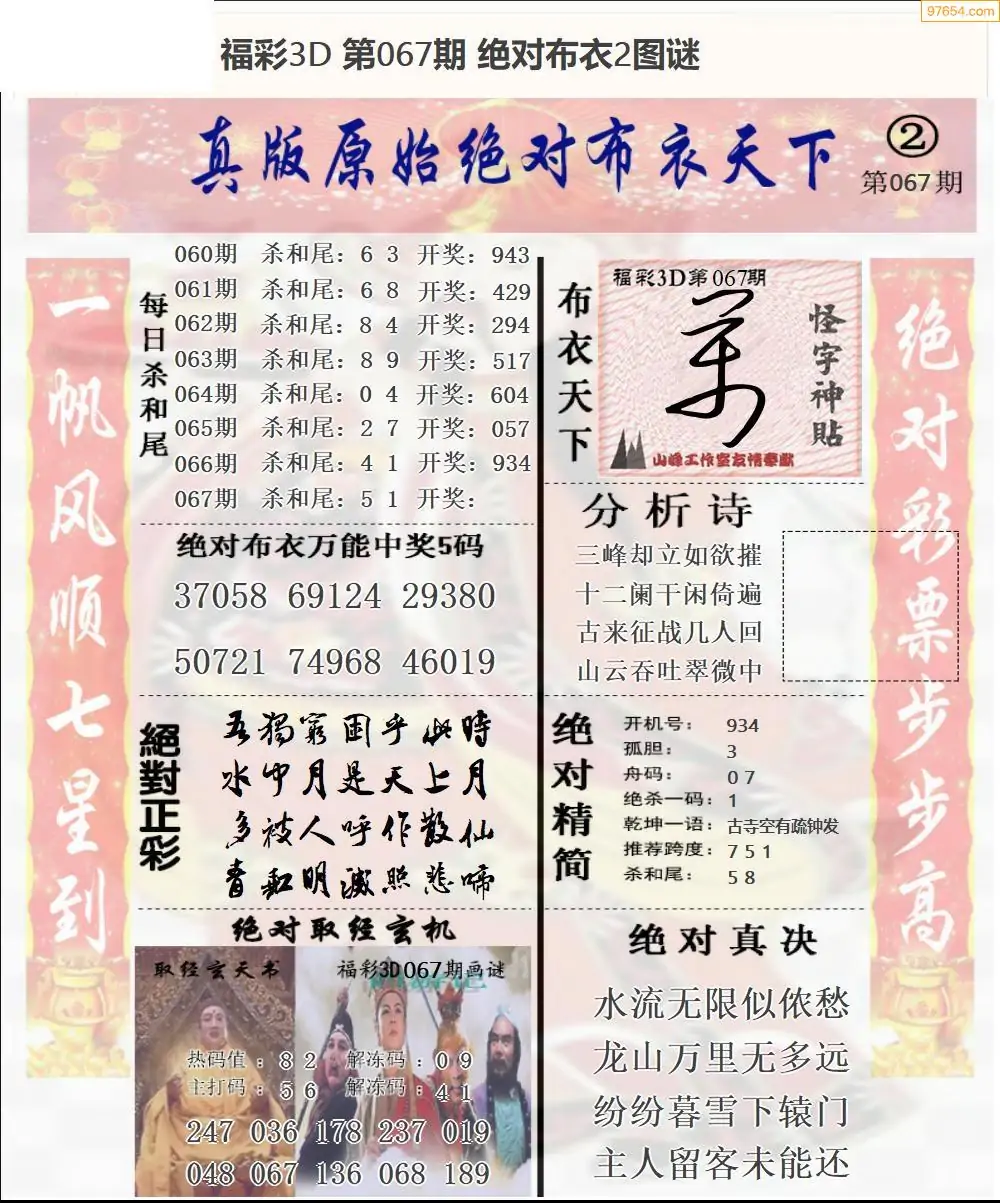 97654.com
福彩3D 第067期 绝对布衣2图谜
真版原始绝对布衣天下
②
第067期
一帆风顺七星到
每日杀和尾
060期 杀和尾：6 3 开奖：943
061期 杀和尾：6 8 开奖：429
062期 杀和尾：8 4 开奖：294
063期 杀和尾：8 9 开奖：517
064期 杀和尾：0 4 开奖：604
065期 杀和尾：2 7 开奖：057
066期 杀和尾：4 1 开奖：934
067期 杀和尾：5 1 开奖：
绝对布衣万能中奖5码
37058 69124 29380
50721 74968 46019
絕對正彩
吾獨窮困乎此時
水中月是天上月
多被人呼作散仙
青和明滅照悲啼
绝对取经玄机
取经玄天书
福彩3D067期画谜
热码值：8 2 解冻码：0 9
主打码：5 6 解冻码：4 1
247 036 178 237 019
048 067 136 068 189
布衣天下
福彩3D第067期
怪字神貼
山峰工作室友情奉献
分析诗
三峰却立如欲摧
十二阑干闲倚遍
古来征战几人回
山云吞吐翠微中
绝对精简
开机号：934
孤胆：3
舟码：0 7
绝杀一码：1
乾坤一语：古寺空有疏钟发
推荐跨度：7 5 1
杀和尾：5 8
绝对真决
水流无限似侬愁
龙山万里无多远
纷纷暮雪下辕门
主人留客未能还
绝对彩票步步高